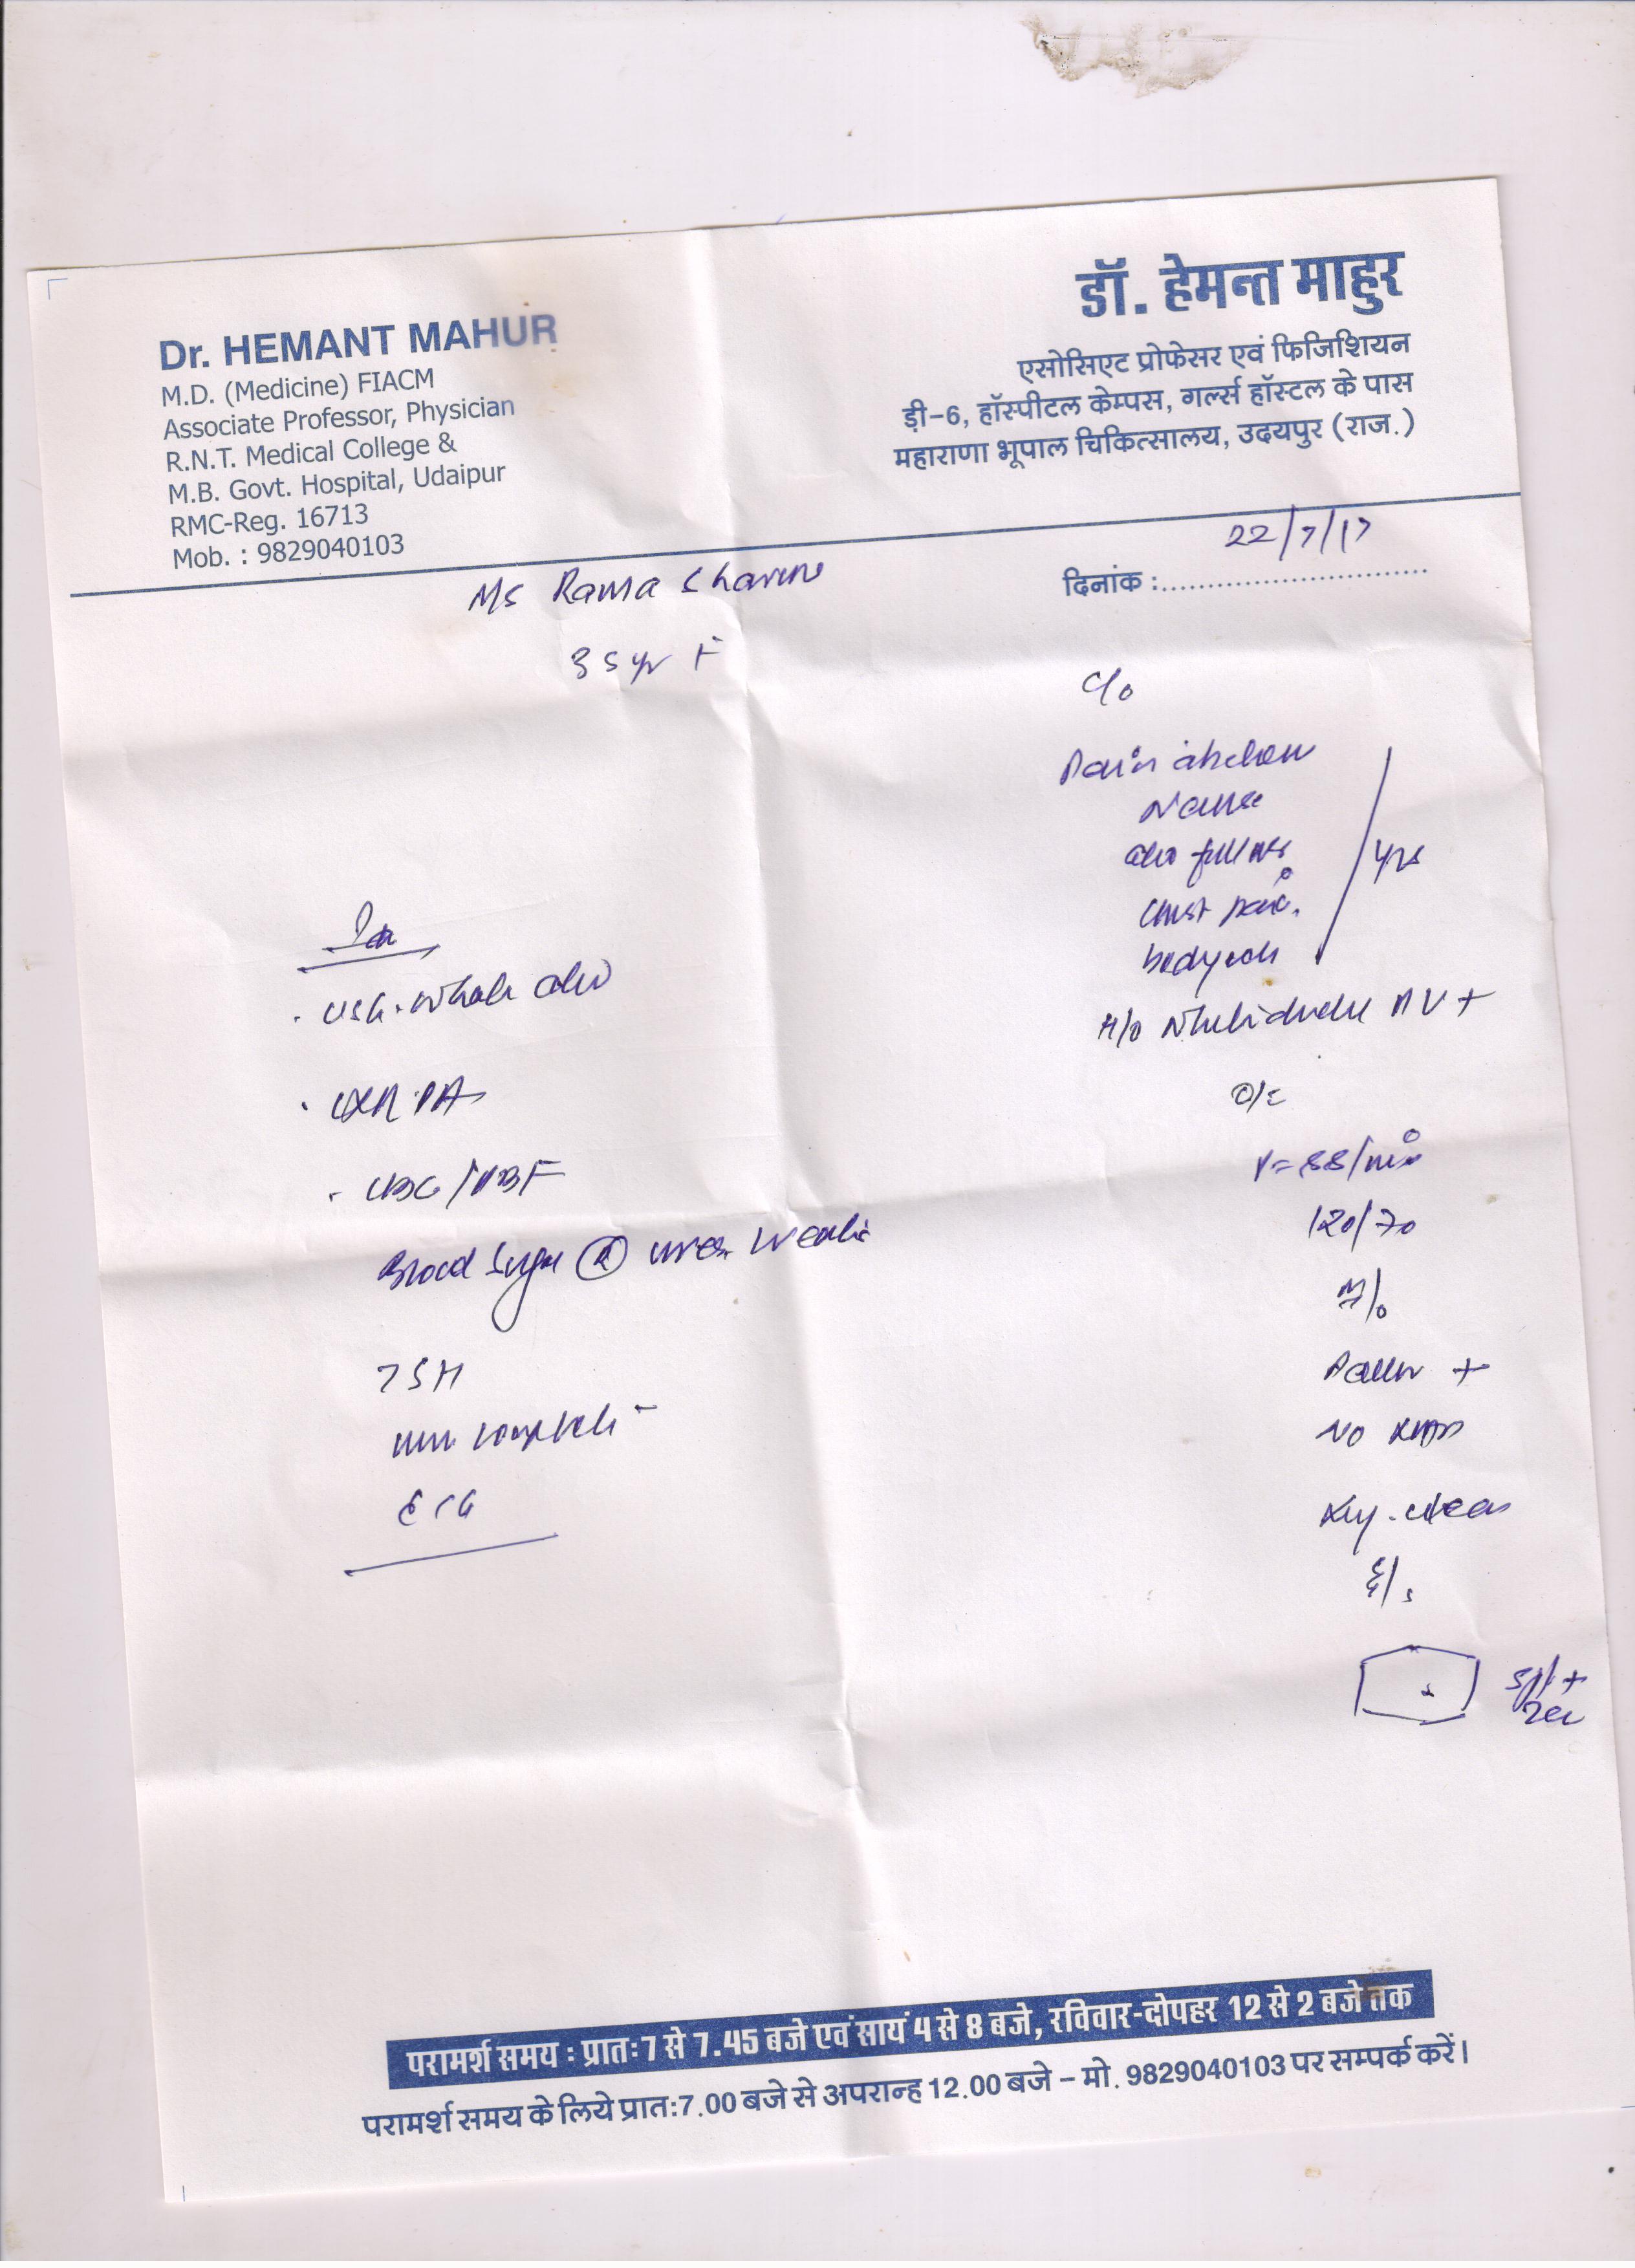 Dr. HEMANT MAHUR
M.D. (Medicine) FIACM
Associate Professor, Physician
R.N.T. Medical College &
M.B. Govt. Hospital, Udaipur
RMC-Reg. 16713
Mob. : 9829040103
डॉ. हेमन्त माहुर
एसोसिएट प्रोफेसर एवं फिजिशियन
ड़ी-6, हॉस्पीटल केम्पस, गर्ल्स हॉस्टल के पास
महाराणा भूपाल चिकित्सालय, उदयपुर (राज.)
22/7/17
दिनांक :
Ms Rama Sharma
35 yr F
C/o
Pain abdomen
Nausea
abd fullness
chest pain
yrs
H/o
O/E
P = 88/min
120/70
Pallor +
NO
clear
USG. Whole abd
CXR PA
CBC/PBF
Blood Sugar (R) urea creatinine
TSH
urine complete
ECG
परामर्श समय : प्रातः 7 से 7.45 बजे एवं सायं 4 से 8 बजे, रविवार-दोपहर 12 से 2 बजे तक
परामर्श समय के लिये प्रातः 7.00 बजे से अपरान्ह 12.00 बजे – मो. 9829040103 पर सम्पर्क करें।